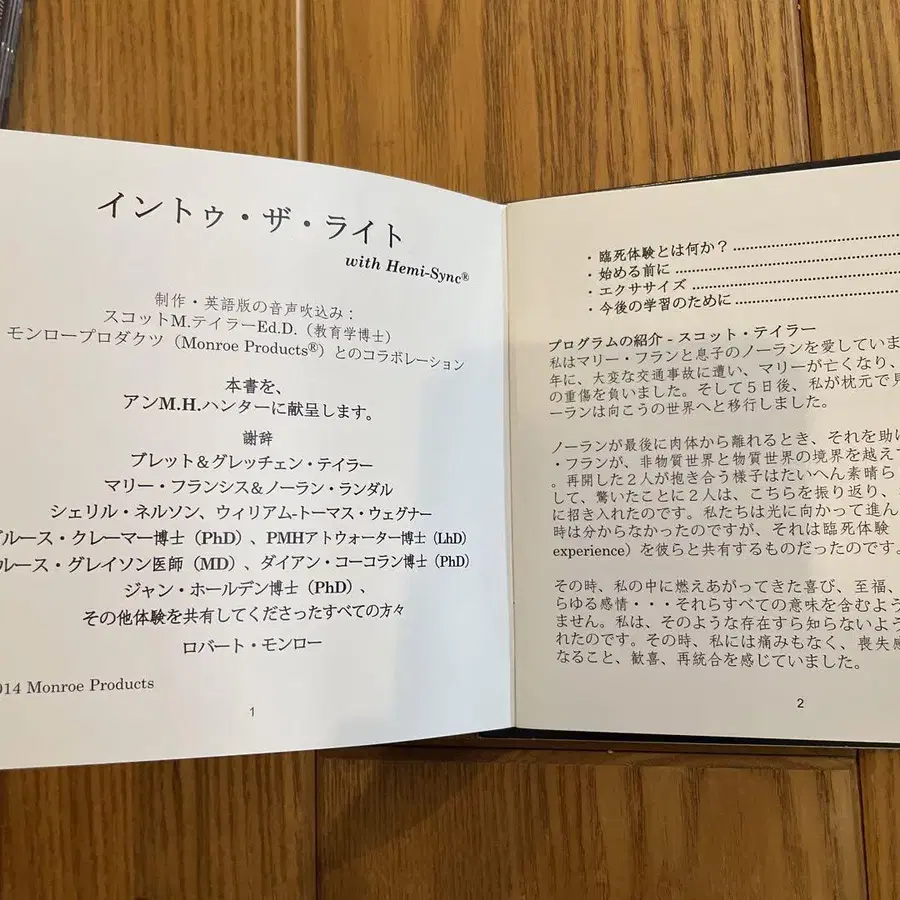 イントゥ・ザ・ライト
with Hemi-Sync®
制作・英語版の音声吹込み：
スコットM.テイラーEd.D.（教育学博士）
モンロープロダクツ（Monroe Products®）とのコラボレーション
本書を、
アンM.H.ハンターに献呈します。
謝辞
ブレット＆グレッチェン・テイラー
マリー・フランシス＆ノーラン・ランダル
シェリル・ネルソン、ウィリアム-トーマス・ウェグナー
ルース・クレーマー博士（PhD）、PMHアトウォーター博士（LhD）
ルース・グレイソン医師（MD）、ダイアン・コーコラン博士（PhD）
ジャン・ホールデン博士（PhD）、
その他体験を共有してくださったすべての方々
ロバート・モンロー
014 Monroe Products
1
・臨死体験とは何か？
・始める前に
・エクササイズ
・今後の学習のために
プログラムの紹介 - スコット・テイラー
私はマリー・フランと息子のノーランを愛していま
年に、大変な交通事故に遭い、マリーが亡くなり、
の重傷を負いました。そして５日後、私が枕元で見
ーランは向こうの世界へと移行しました。
ノーランが最後に肉体から離れるとき、それを助け
・フランが、非物質世界と物質世界の境界を越えて
。再開した２人が抱き合う様子はたいへん素晴ら
して、驚いたことに２人は、こちらを振り返り、
に招き入れたのです。私たちは光に向かって進ん
時は分からなかったのですが、それは臨死体験
experience）を彼らと共有するものだったのです。
その時、私の中に燃えあがってきた喜び、至福、
らゆる感情・・・それらすべての意味を含むよう
ません。私は、そのような存在すら知らないよう
れたのです。その時、私には痛みもなく、喪失感
なること、歓喜、再統合を感じていました。
2